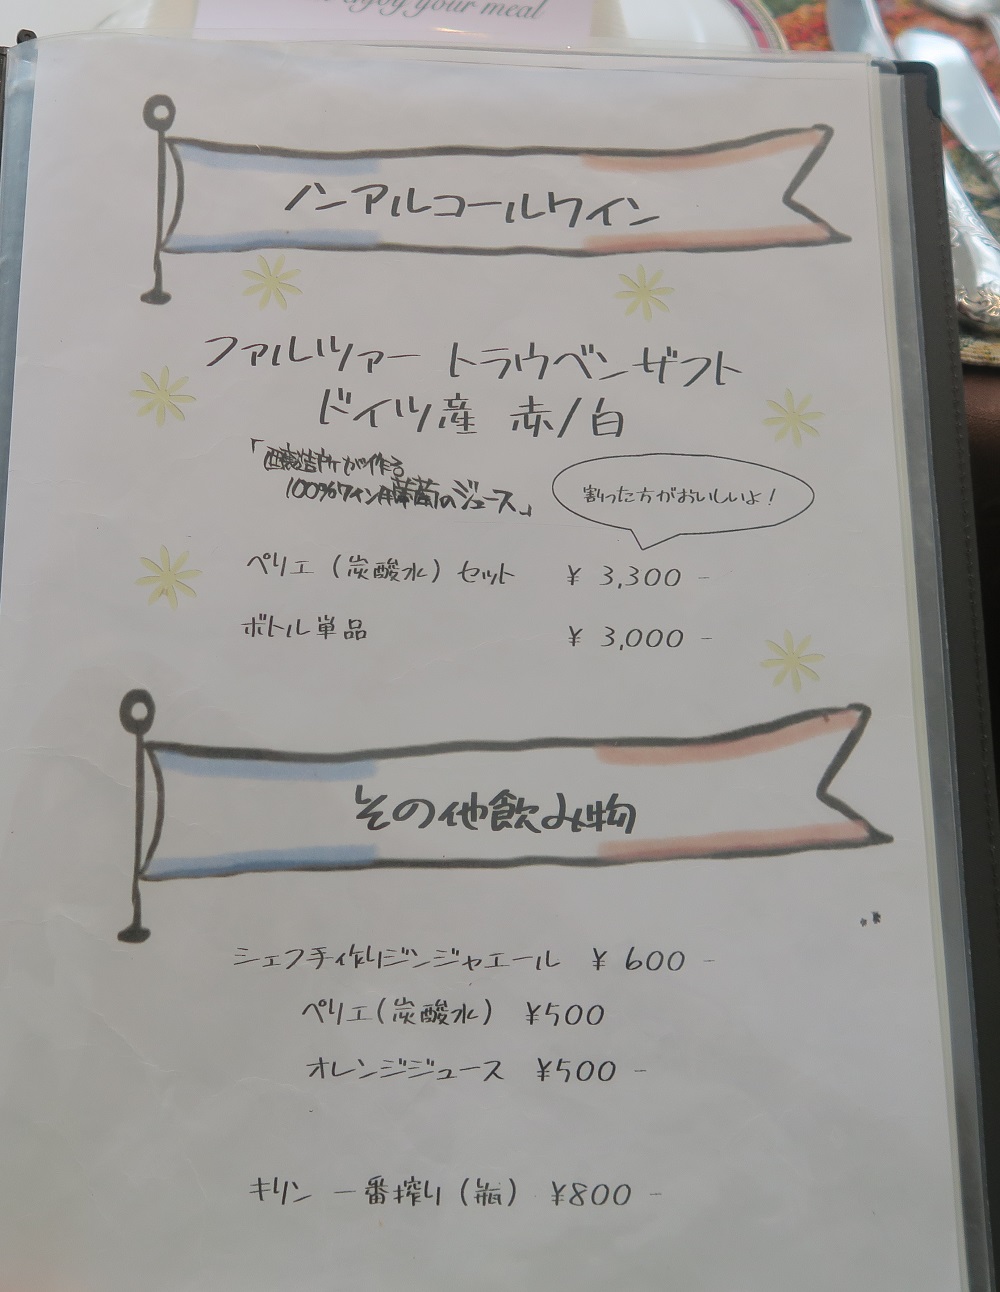 enjoy your meal
ノンアルコールワイン
ファルツァー トラウベンザフト
ドイツ産 赤/白
「醸造所が作る
100%ワイン用葡萄のジュース」
割った方がおいしいよ!
ペリエ(炭酸水)セット ¥3,300-
ボトル単品 ¥3,000-
その他飲み物
シェフ手作りジンジャエール ¥600-
ペリエ(炭酸水) ¥500
オレンジジュース ¥500-
キリン 一番搾り(瓶) ¥800-